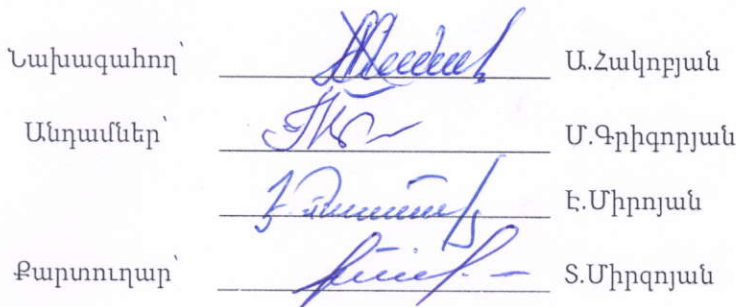 Նախագահող՝ Ա.Հակոբյան
Անդամներ՝ Մ.Գրիգորյան
Է.Միրոյան
Քարտուղար՝ Տ.Միրզոյան